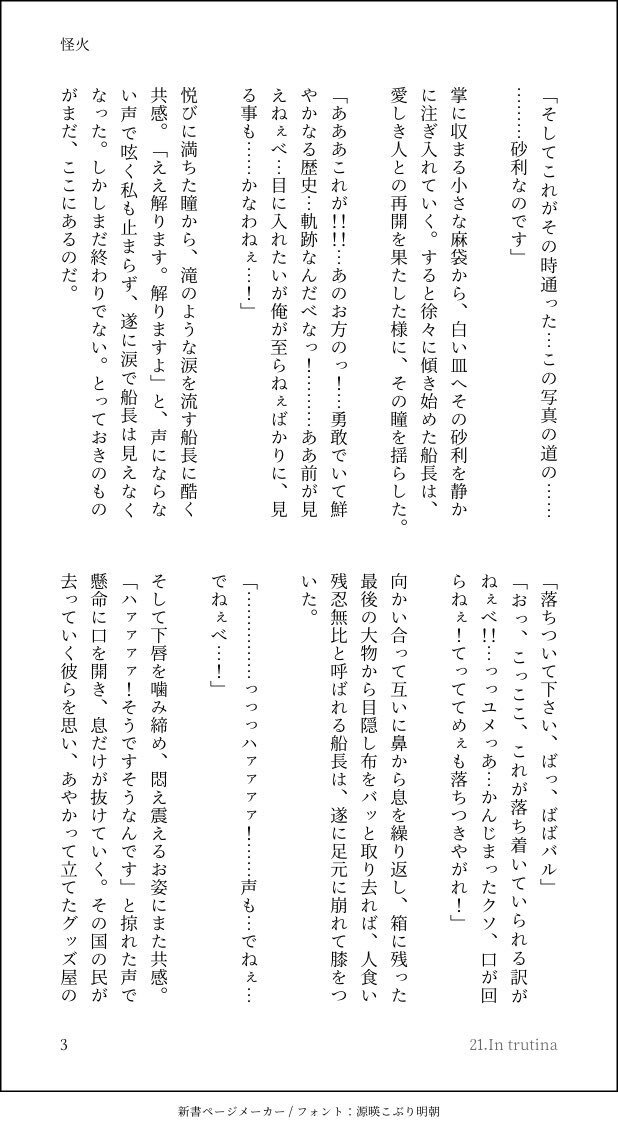 怪火
「そしてこれがその時通った…この写真の道の……
………砂利なのです」
掌に収まる小さな麻袋から、白い皿へその砂利を静か
に注ぎ入れていく。すると徐々に傾き始めた船長は、
愛しき人との再開を果たした様に、その瞳を揺らした。
「あああこれが!!!…あのお方のっ！…勇敢でいて鮮
やかなる歴史…軌跡なんだべなっ！………ああ前が見
えねぇべ…目に入れたいが俺が至らねぇばかりに、見
る事も……かなわねぇ…！」
悦びに満ちた瞳から、滝のような涙を流す船長に酷く
共感。「ええ解ります。解りますよ」と、声にならな
い声で呟く私も止まらず、遂に涙で船長は見えなく
なった。しかしまだ終わりでない。とっておきのもの
がまだ、ここにあるのだ。
「落ちついて下さい、ばっ、ばばバル」
「おっ、こっここ、これが落ち着いていられる訳が
ねぇべ!!…っっユメっあ…かんじまったクソ、口が回
らねぇ！てっててめぇも落ちつきやがれ！」
向かい合って互いに鼻から息を繰り返し、箱に残った
最後の大物から目隠し布をバッと取り去れば、人食い
残忍無比と呼ばれる船長は、遂に足元に崩れて膝をつ
いた。
「……………っっっハァァァァ！……声も…でねぇ…
でねぇべ…！」
そして下唇を噛み締め、悶え震えるお姿にまた共感。
「ハァァァァ！そうですそうなんです」と掠れた声で
懸命に口を開き、息だけが抜けていく。その国の民が
去っていく彼らを思い、あやかって立てたグッズ屋の
3
21.In trutina
新書ページメーカー / フォント：源暎こぶり明朝